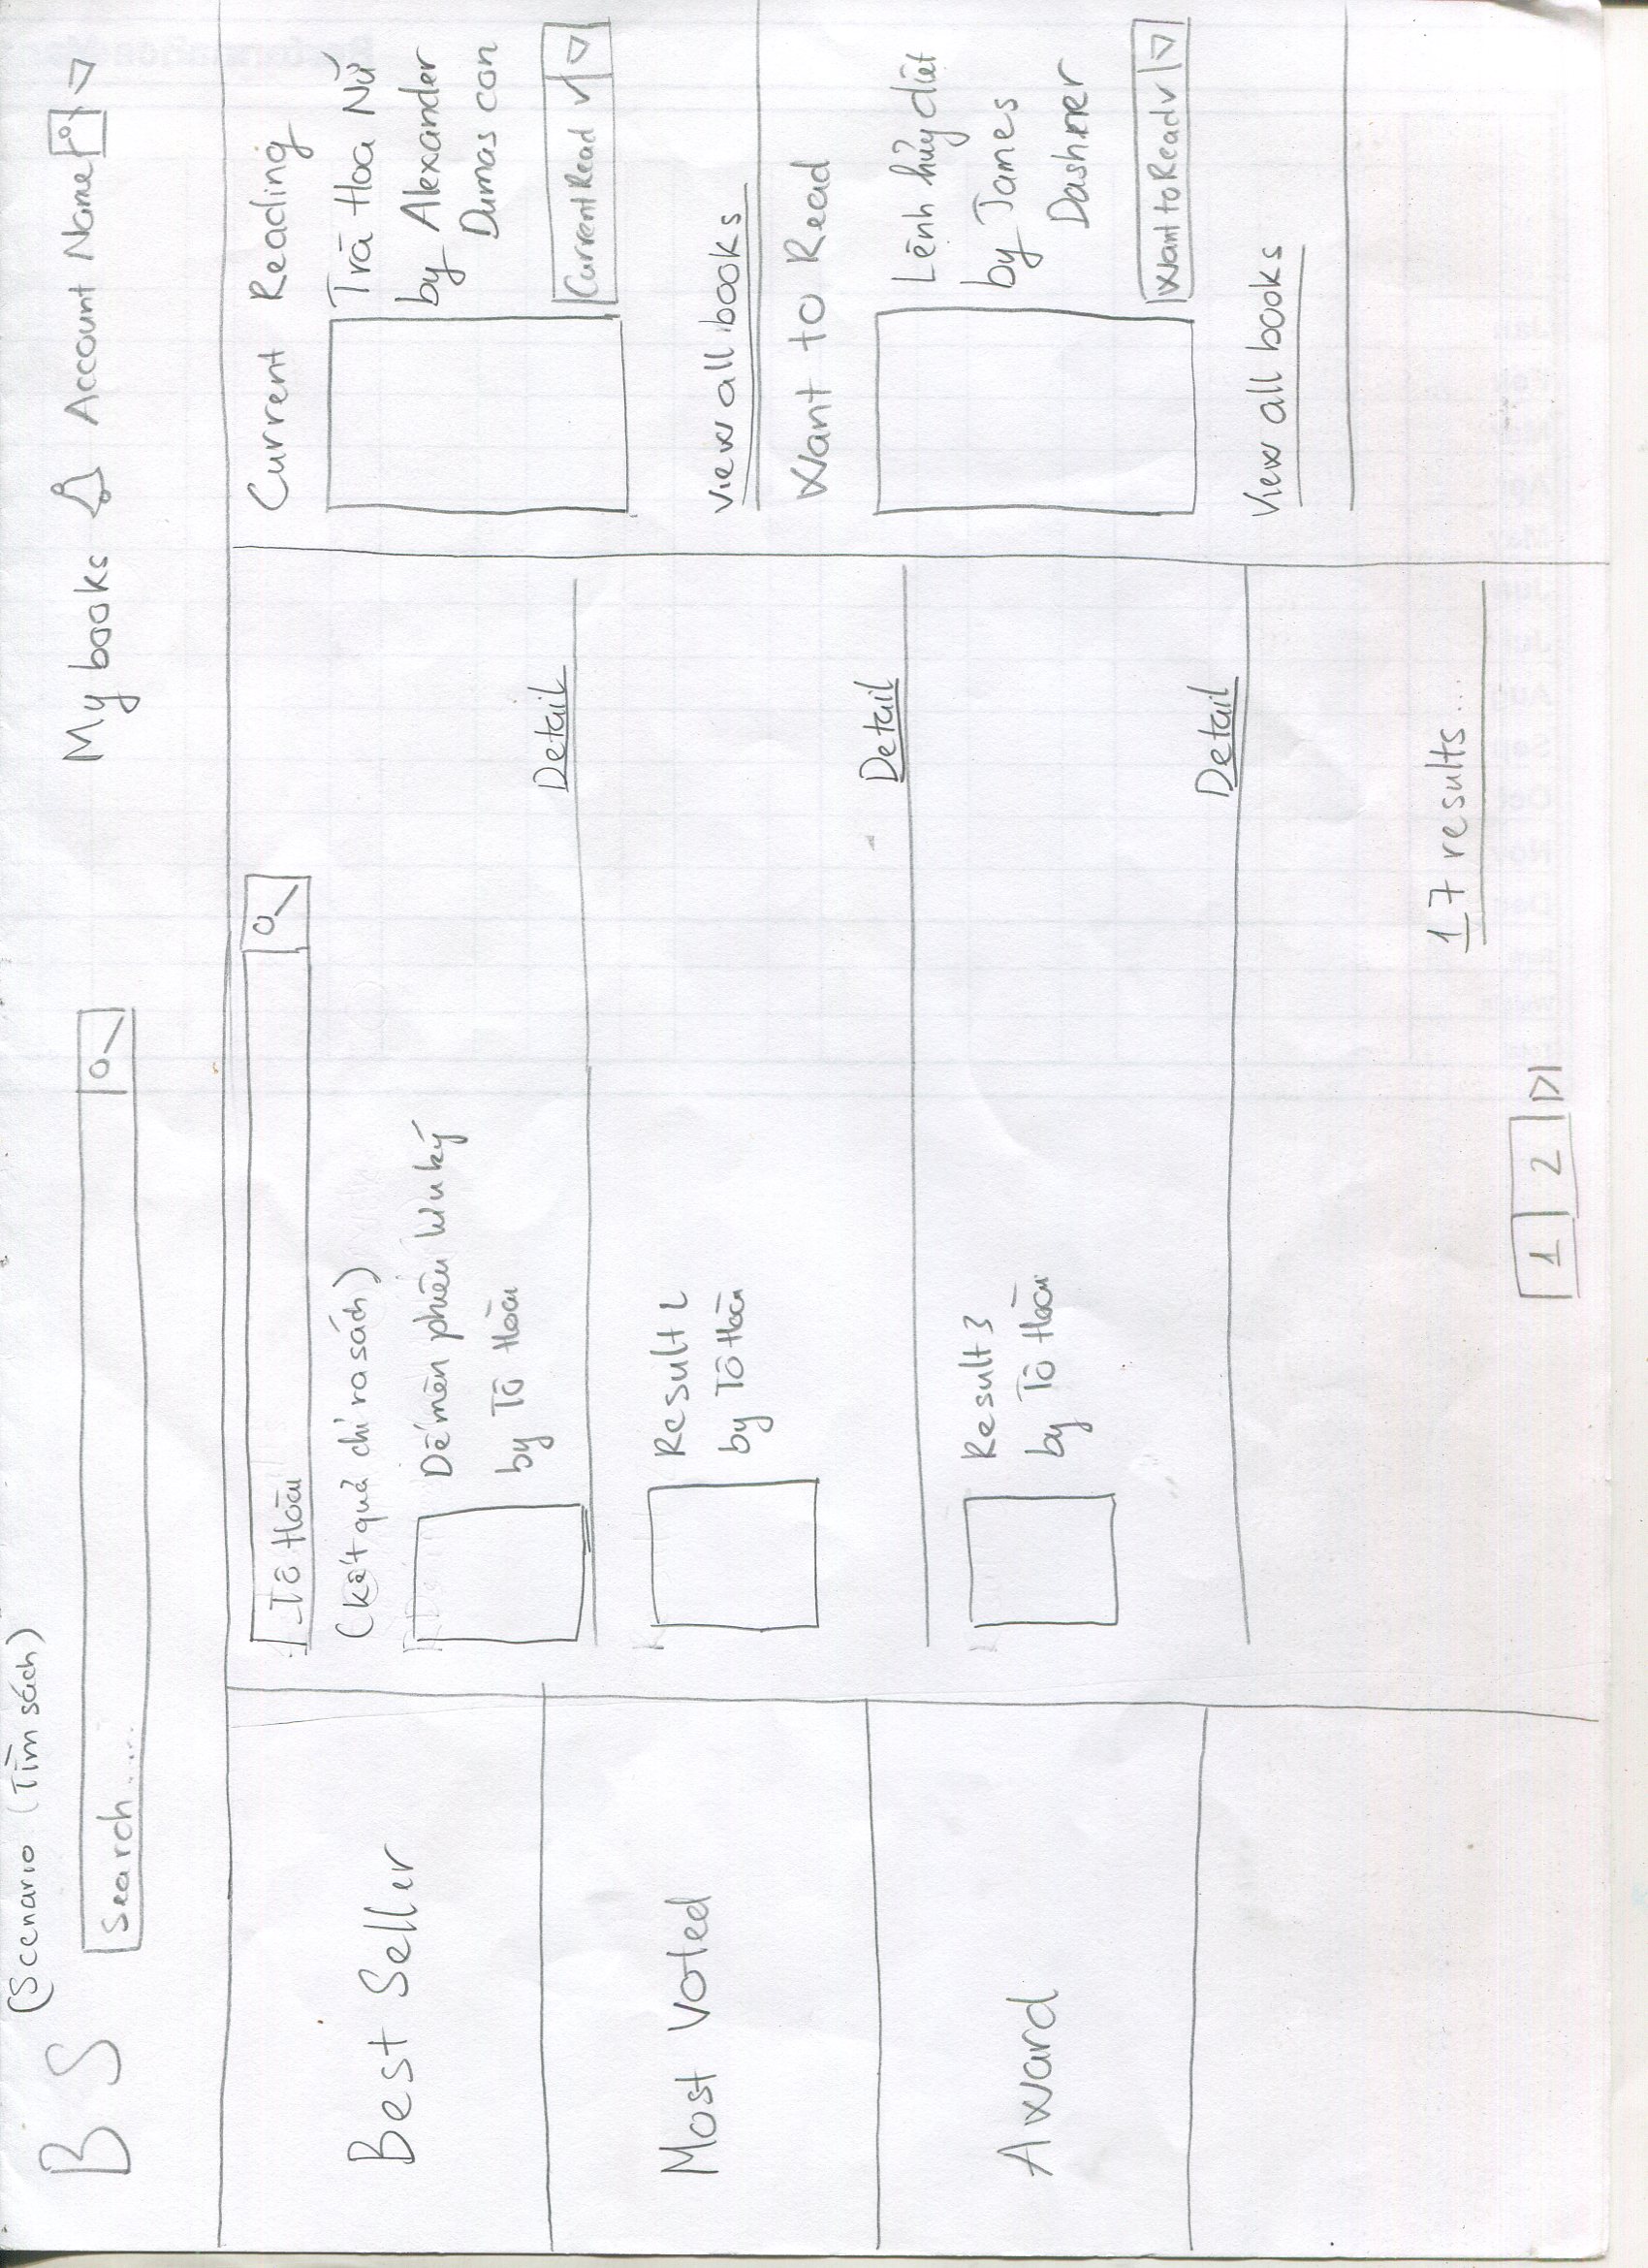 (Scenario (Tìm sách)
BS
Search.....
My books
Account Name
Best Seller
Most Voted
Award
Tô Hoài
(kết quả chỉ ra sách)
Dế mèn phiêu lưu ký
by Tô Hoài
Detail
Result 2
by Tô Hoài
Detail
Result 3
by Tô Hoài
Detail
17 results...
1 2
Current Reading
Trà Hoa Nữ
by Alexander
Dumas con
Current Read
view all books
Want to Read
Lệnh hủy diệt
by James
Dashner
Want to Read
View all books